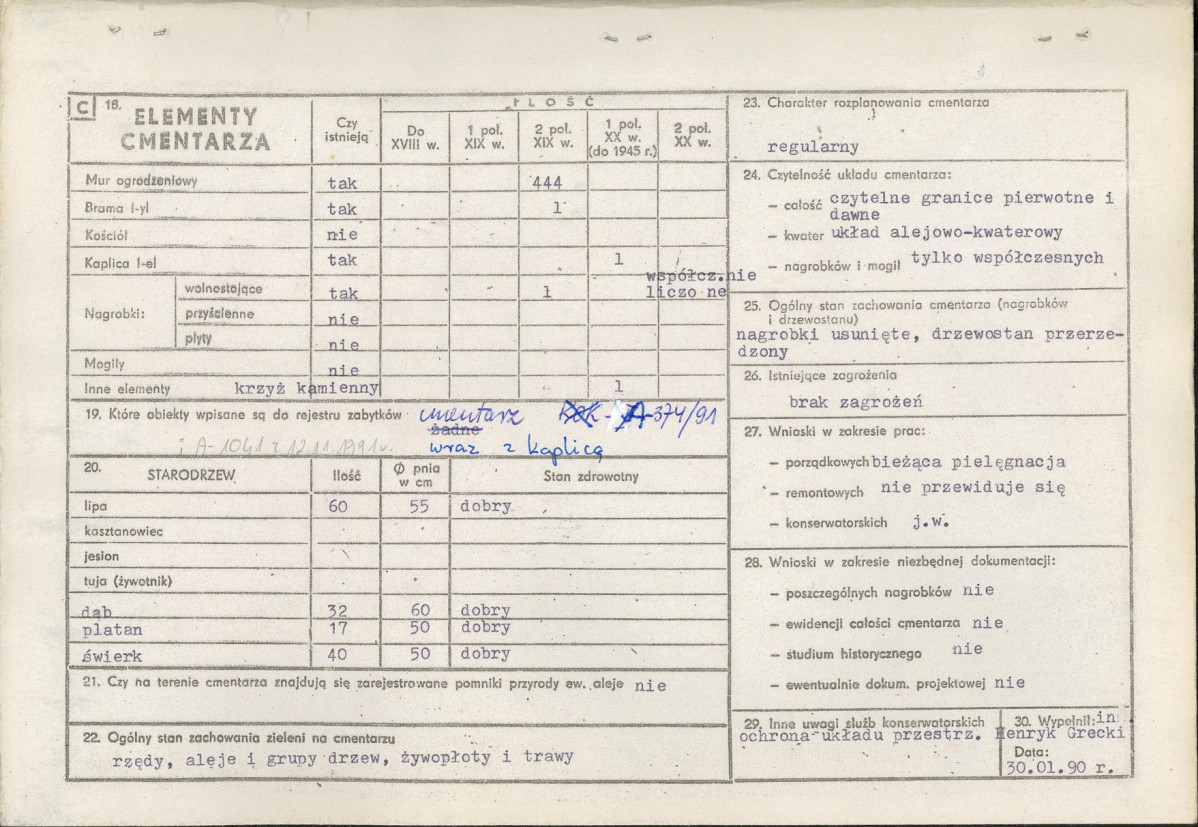 C 18. ELEMENTY CMENTARZA
Czy istnieją
ILOŚĆ
Do XVIII w.
1 poł. XIX w.
2 poł. XIX w.
1 poł. XX w. (do 1945 r.)
2 poł. XX w.
Mur ogrodzeniowy tak 444
Brama I-yl tak 1
Kościół nie
Kaplica I-el tak 1
współcz.nie
Nagrobki:
wolnostojące tak 1 liczo ne
przyścienne nie
płyty nie
Mogiły nie
Inne elementy krzyż kamienny 1
19. Które obiekty wpisane są do rejestru zabytków cmentarz A-374/91
żadne
i A-1041 z 12.11.1991r. wraz z kaplicą
20. STARODRZEW Ilość Ø pnia w cm Stan zdrowotny
lipa 60 55 dobry
kasztanowiec
jesion
tuja (żywotnik)
dąb 32 60 dobry
platan 17 50 dobry
świerk 40 50 dobry
21. Czy na terenie cmentarza znajdują się zarejestrowane pomniki przyrody ew. aleje nie
22. Ogólny stan zachowania zieleni na cmentarzu
rzędy, aleje i grupy drzew, żywopłoty i trawy
23. Charakter rozplanowania cmentarza
regularny
24. Czytelność układu cmentarza:
– całość czytelne granice pierwotne i
dawne
– kwater układ alejowo-kwaterowy
– nagrobków i mogił tylko współczesnych
25. Ogólny stan zachowania cmentarza (nagrobków
i drzewostanu)
nagrobki usunięte, drzewostan przerze-
dzony
26. Istniejące zagrożenia
brak zagrożeń
27. Wnioski w zakresie prac:
– porządkowych bieżąca pielęgnacja
– remontowych nie przewiduje się
– konserwatorskich j.w.
28. Wnioski w zakresie niezbędnej dokumentacji:
– poszczególnych nagrobków nie
– ewidencji całości cmentarza nie
– studium historycznego nie
– ewentualnie dokum. projektowej nie
29. Inne uwagi służb konserwatorskich
ochrona układu przestrz.
30. Wypełnił: in
Henryk Grecki
Data:
30.01.90 r.